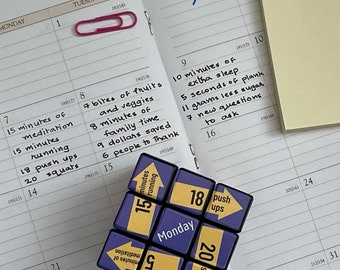 MONDAY
TUESDAY
1
7
15 minutes of
meditation
15 minutes
running
18 push ups
20 squats
14
21
8
7 bites of fruits
and veggies
8 minutes of
family time
9 dollars saved
6 people to thank
9
10 minutes of
extra sleep
5 seconds of plank
11 grams less sugar
7 new questions
to ask
16
minutes
running
15
18
push
ups
Monday
minutes of
meditation
15
20